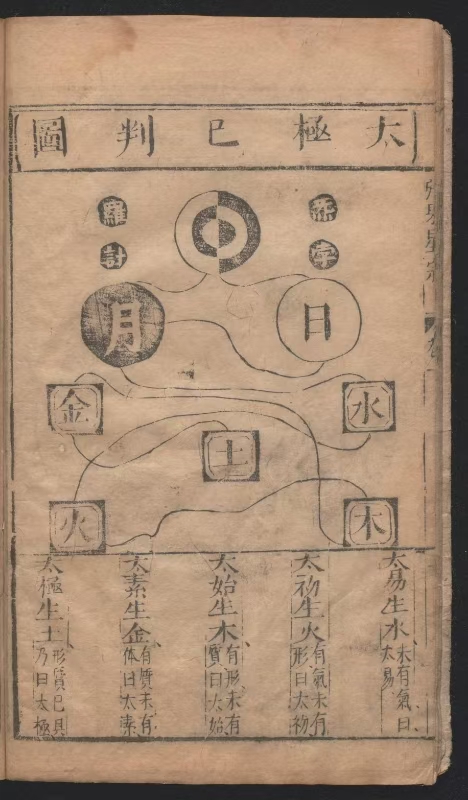 太極已判圖
炁孛
羅計
日
月
水
金
土
木
火
太易生水 未有氣曰太易
太初生火 有氣未有形曰太初
太始生木 有形未有質曰太始
太素生金 有質未有体曰太素
太極生土 形質已具乃曰太極